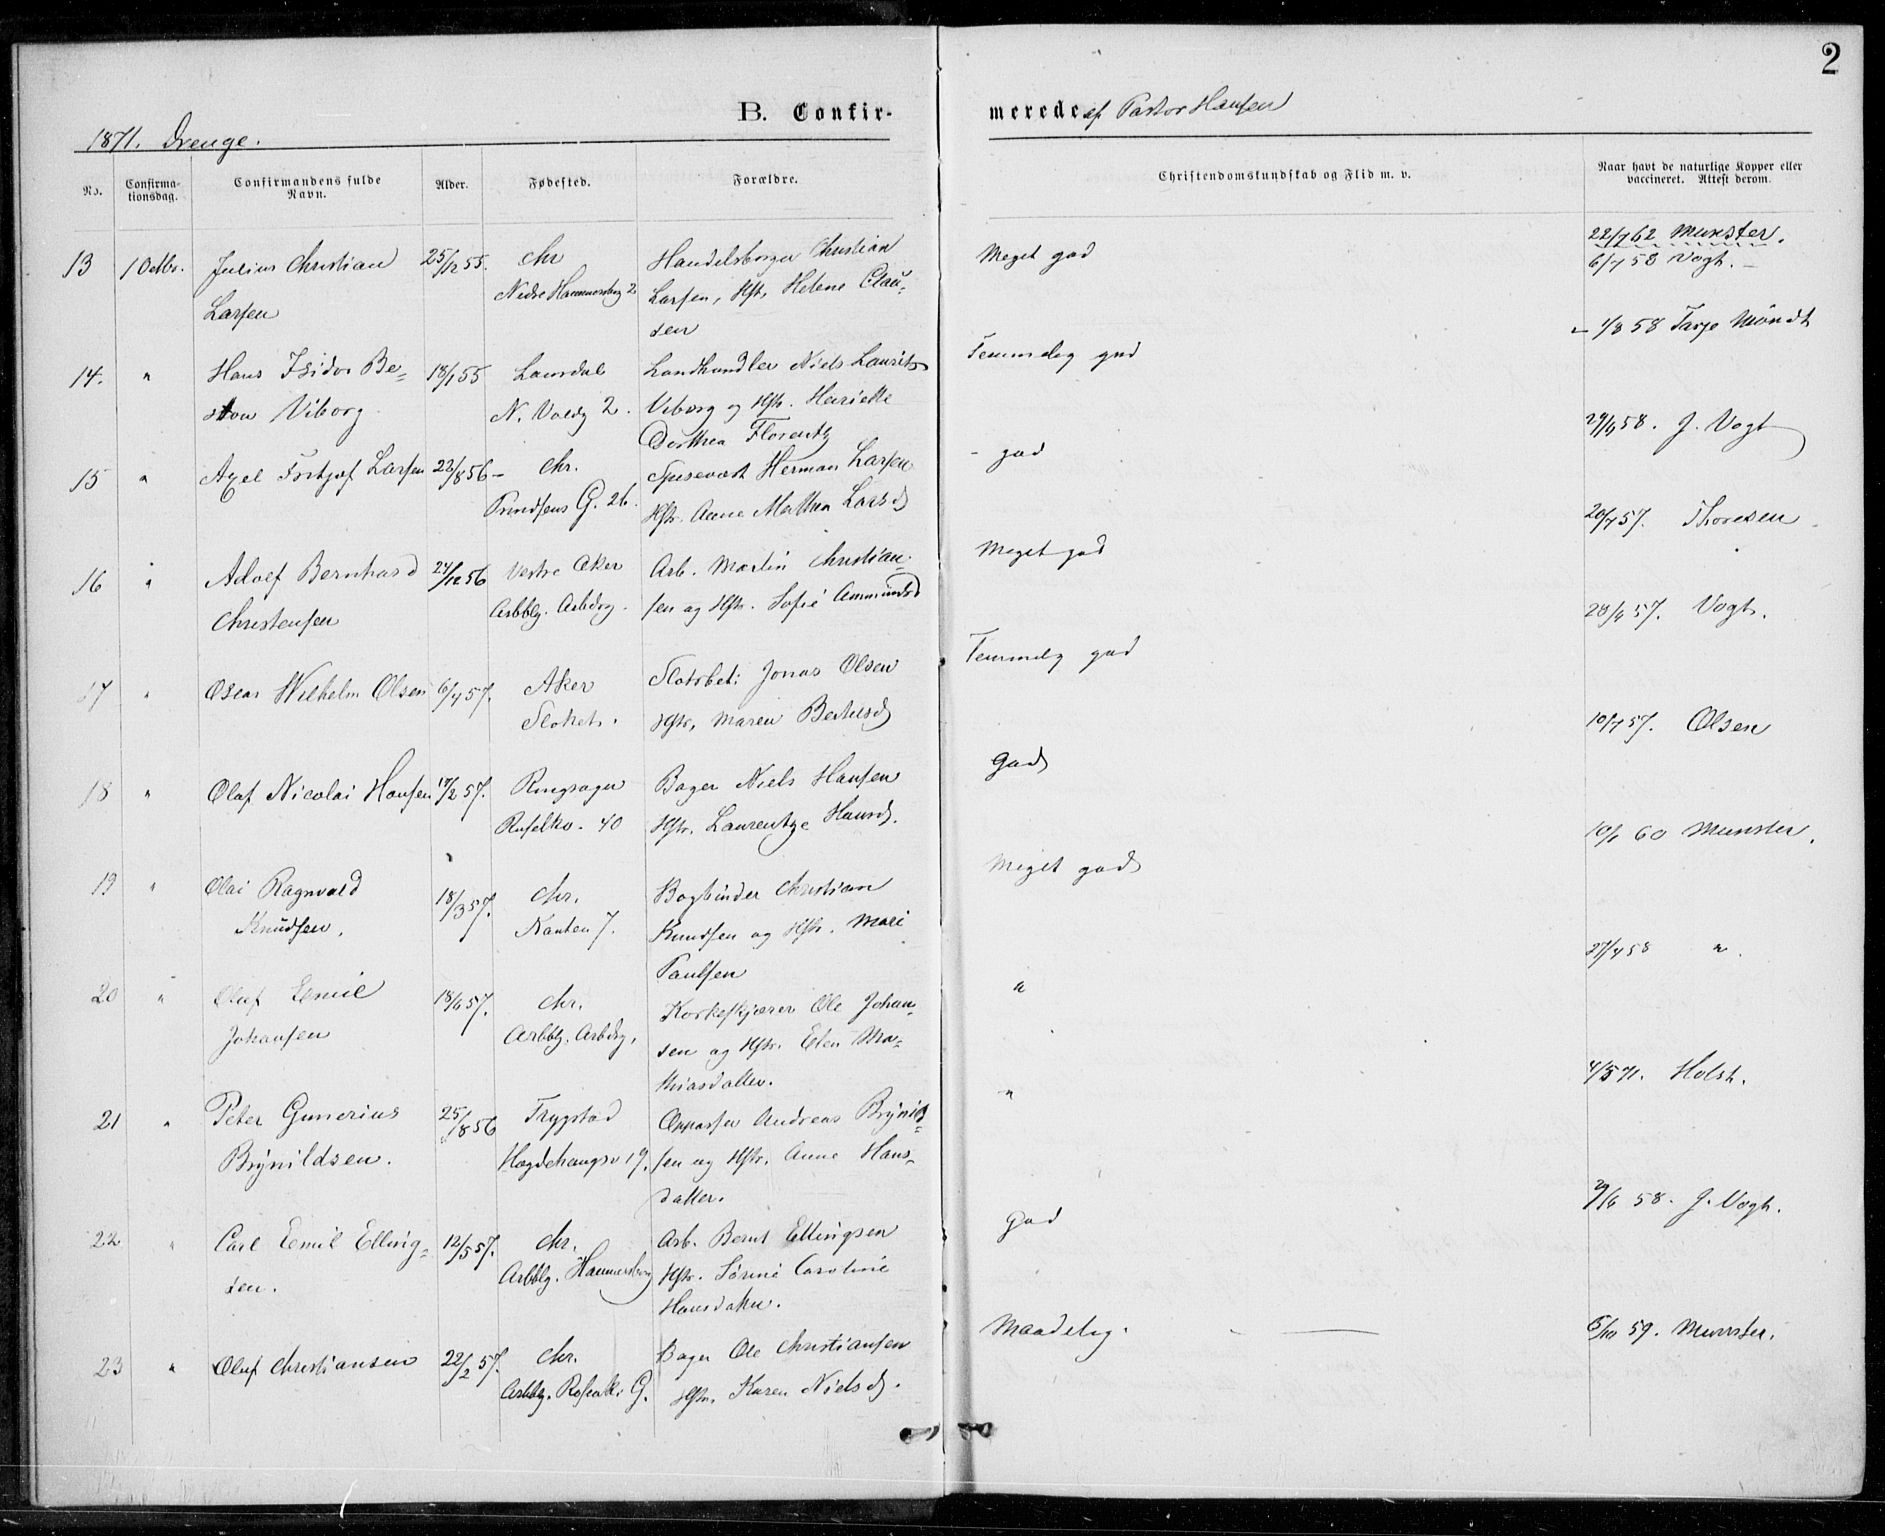 2
B. Confir-
merede af Pastor Hansen
1871. Drenge.
No.
Confirma-
tionsdag.
Confirmandens fulde
Navn.
Alder.
Fødested.
Forældre.
Christendomskundskab og Flid m. v.
Naar havt de naturlige Kopper eller
vaccineret. Attest derom.
13 1 Octbr. Julius Christian 25/12 55. Chr Handelsborger Christian Meget god 22/7 62 Munster.
Larsen Nedre Hammersborg 2 Larsen, Hstr. Helene Clau- 6/7 58 Vogt. —
sen
14. " Hans Isidor Be- 18/1 55 Landhandler Niels Laurits Temmelig god 1/8 58 Møndt
Viborg N. Voldg 2. Viborg og Hstr. Henriette
Dorthea Florentz
15 " Axel Fritjof Larsen 22/8 56 Chr. Spisevært Herman Larsen - god 29/4 58. J. Vogt
G. 26. Hstr. Anne Mathea Larsd
16 " Adolf Bernhard 24/12 56 Vestre Aker Arb. Martin Christian- Meget god 20/7 57. Thoresen
Christensen Arbblg. Arbdrg. sen og Hstr. Sofie Ammundsd
17 " Oscar Wilhelm Olsen 6/4 57. Aker Slotsbet: Jonas Olsen Temmelig god 28/4 57. Vogt.
Slottet. Hstr. Maren Bertelsd
18 " Olaf Nicolai Hansen 17/2 57. Ringsager Bager Niels Hansen God 10/7 57. Olsen
40 Hstr. Laurentze Hansd.
19 " Olai Ragnvald 18/3 57. Chr. Bogbinder Christian Meget god 10/6 60 Munster.
Knudsen. Kanten 7. Knudsen og Hstr. Mari
Paulsen
20 " Oluf Emil 18/6 57. Chr. Korkeskjærer Ole Johan- " 27/4 58 "
Johansen Arbblg. Arbdrg. sen og Hstr. Elen Ma-
thiasdatter.
21 " Peter Gunerius 25/8 56 Trygstad Oppasser Andreas Brynild- " 4/5 71. Holst.
Brynildsen. Hægdehaugsv 19. sen og Hstr. Anne Hans-
datter.
22 " Carl Emil Elling- 12/5 57. Chr. Arb. Bernt Ellingsen God 29/6 58. J. Vogt.
sen. Arbblg. Hammersborg Hstr. Sørine Caroline
Hansdatter.
23 " Oluf Christiansen 22/2 57. Chr. Bager Ole Christiansen Maadelig. 5/10 59. Munster.
Arbblg. G. Hstr. Karen Nielsd.